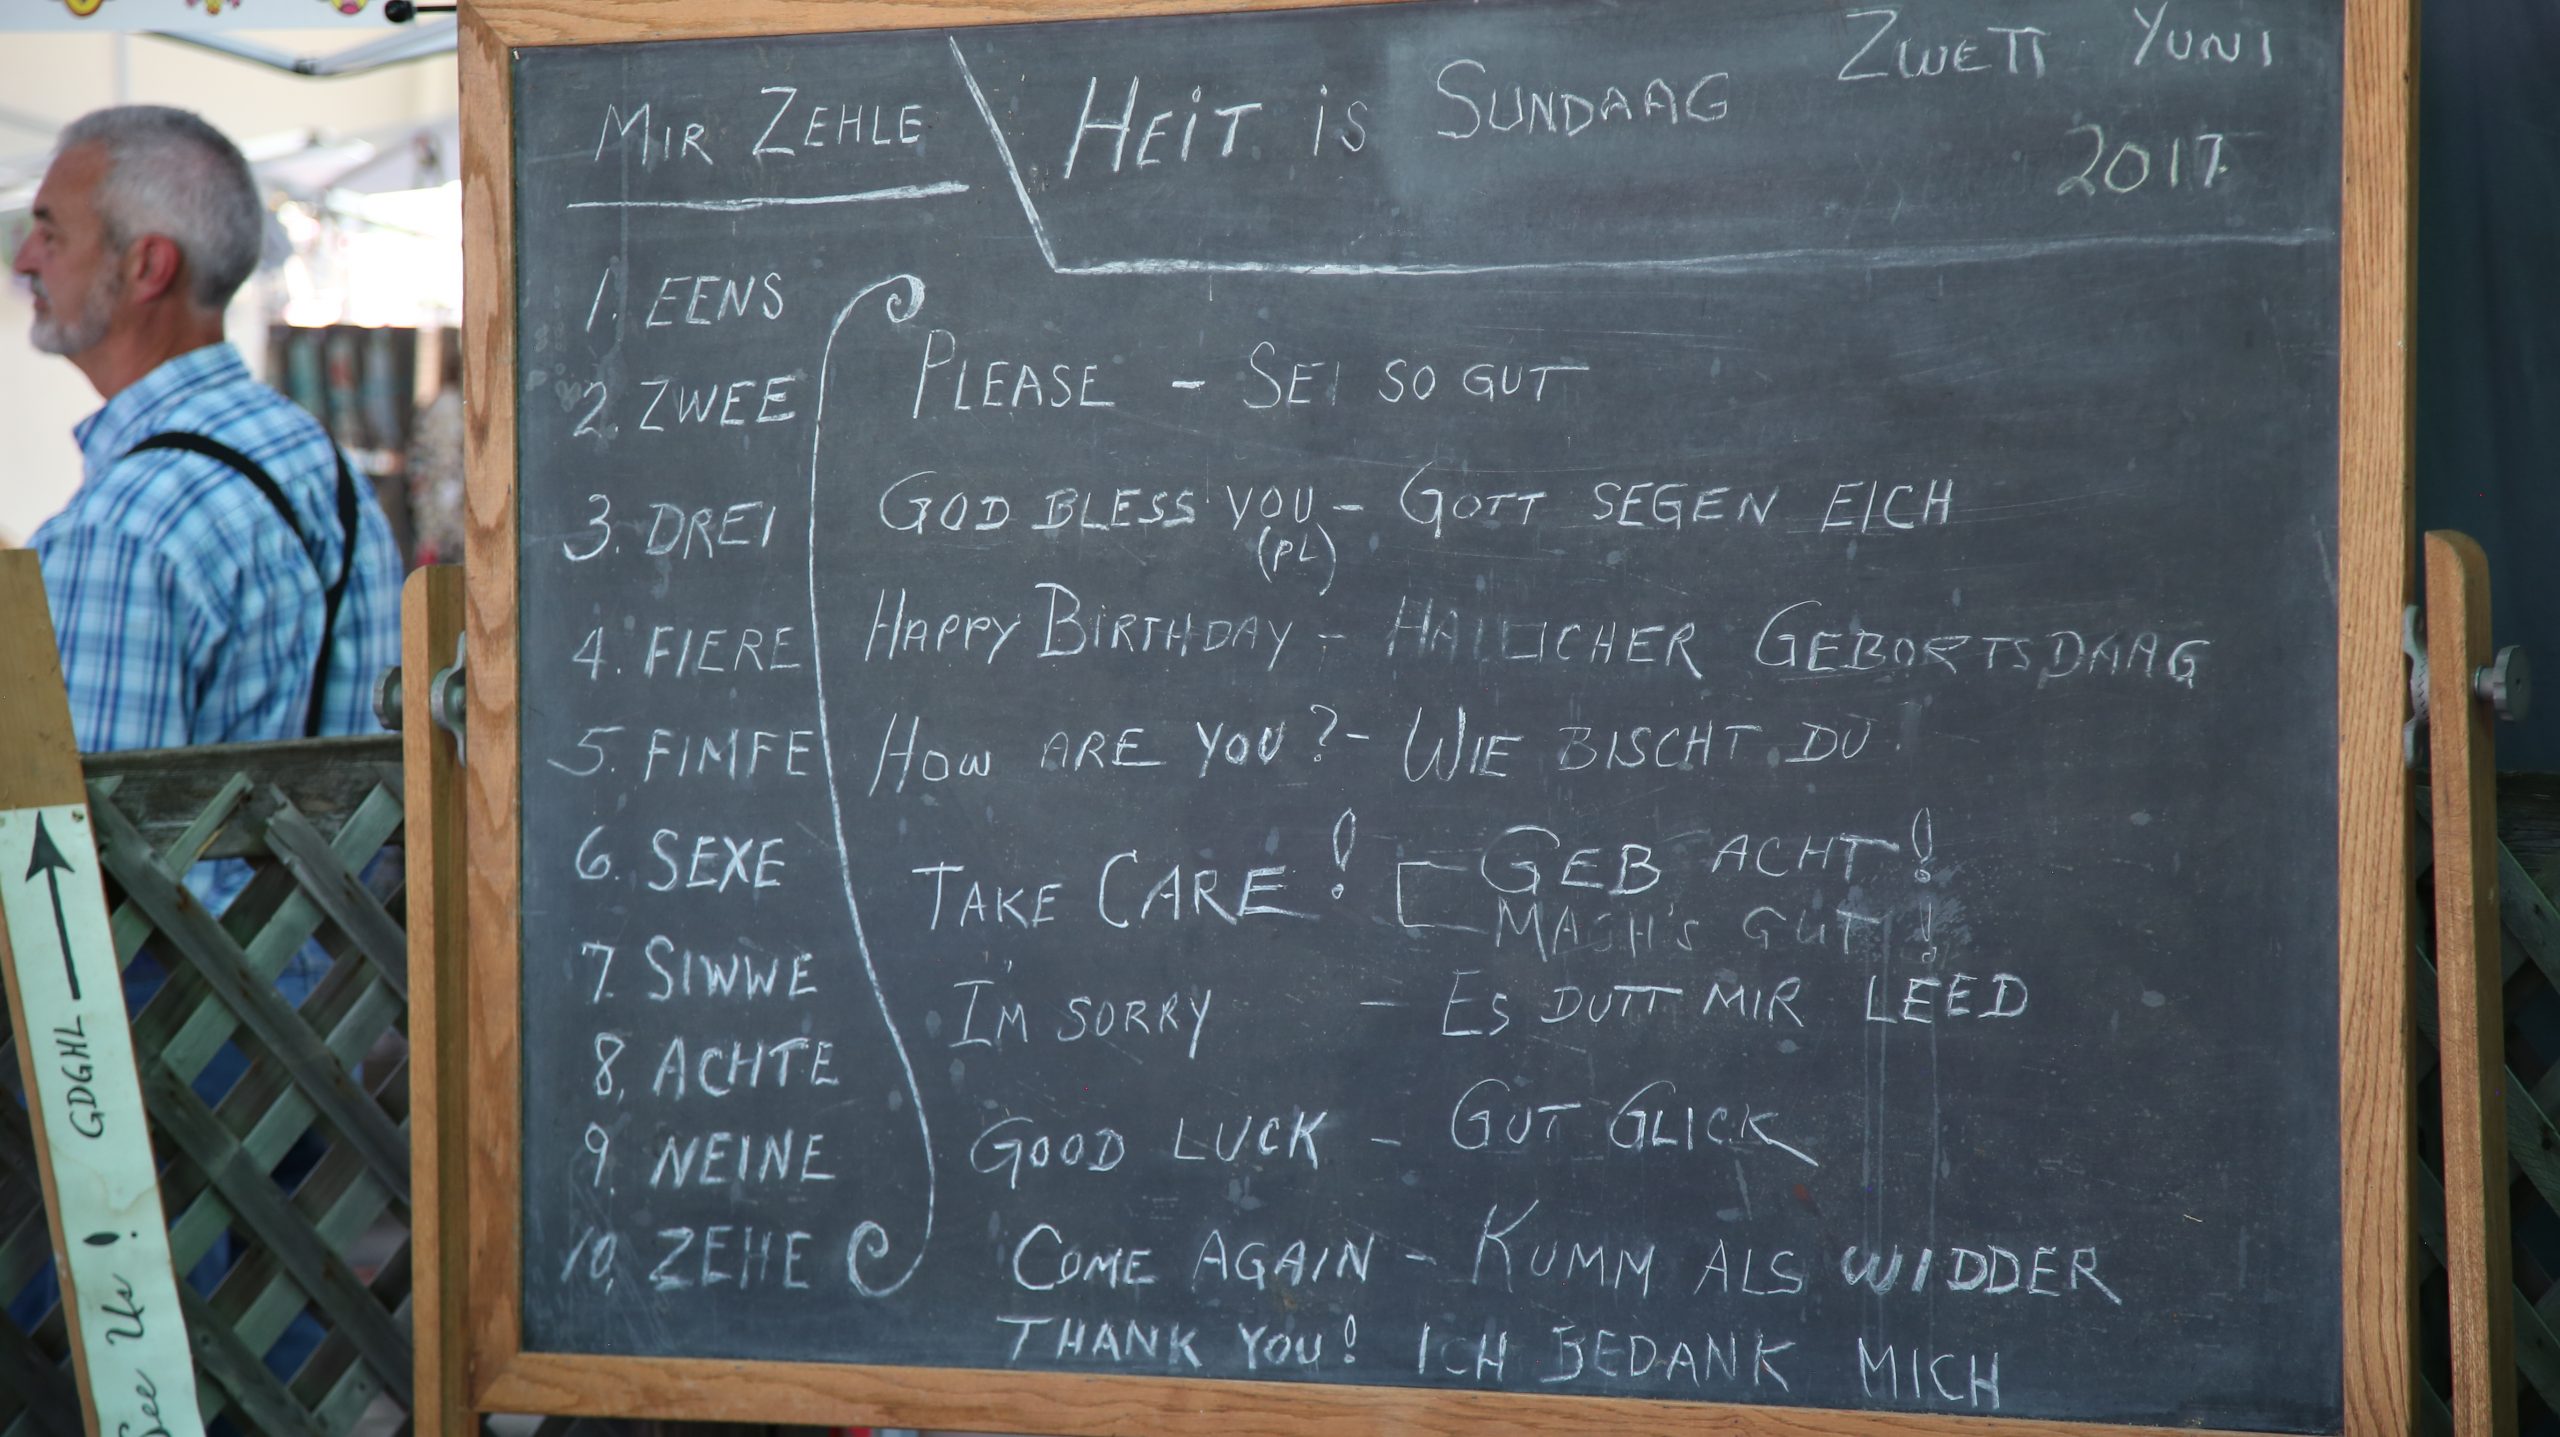 MIR ZEHLE
HEIT IS SUNDAAG
ZWETT YUNI
2017
1. EENS
2. ZWEE
3. DREI
4. FIERE
5. FIMFE
6. SEXE
7. SIWWE
8. ACHTE
9. NEINE
10. ZEHE
PLEASE - SEI SO GUT
GOD BLESS YOU - GOTT SEGEN EICH
(PL)
HAPPY BIRTHDAY - HALLICHER GEBORTSDAAG
HOW ARE YOU? - WIE BISCHT DU
TAKE CARE! GEB ACHT!
MACH'S GUT!
I'M SORRY - ES DUTT MIR LEED
GOOD LUCK - GUT GLICK
COME AGAIN - KUMM ALS WIDDER
THANK YOU! ICH BEDANK MICH
GDGHL
See Us!